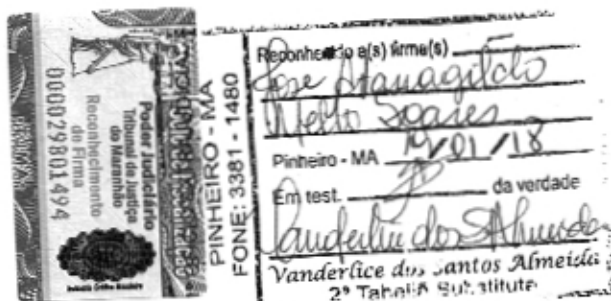 Poder Judiciário
Tribunal de Justiça
do Maranhão
Reconhecimento
de Firma
000029801494
PINHEIRO - MA
FONE: 3381 - 1480
Reconheçido a(s) firma(s)
Jose Atanagildo
Mello Soares
Pinheiro - MA 19/01/18
Em test. da verdade
Vanderlice dos S Almeida
Vanderlice dos Santos Almeida
2ª Tabeliã Substituta